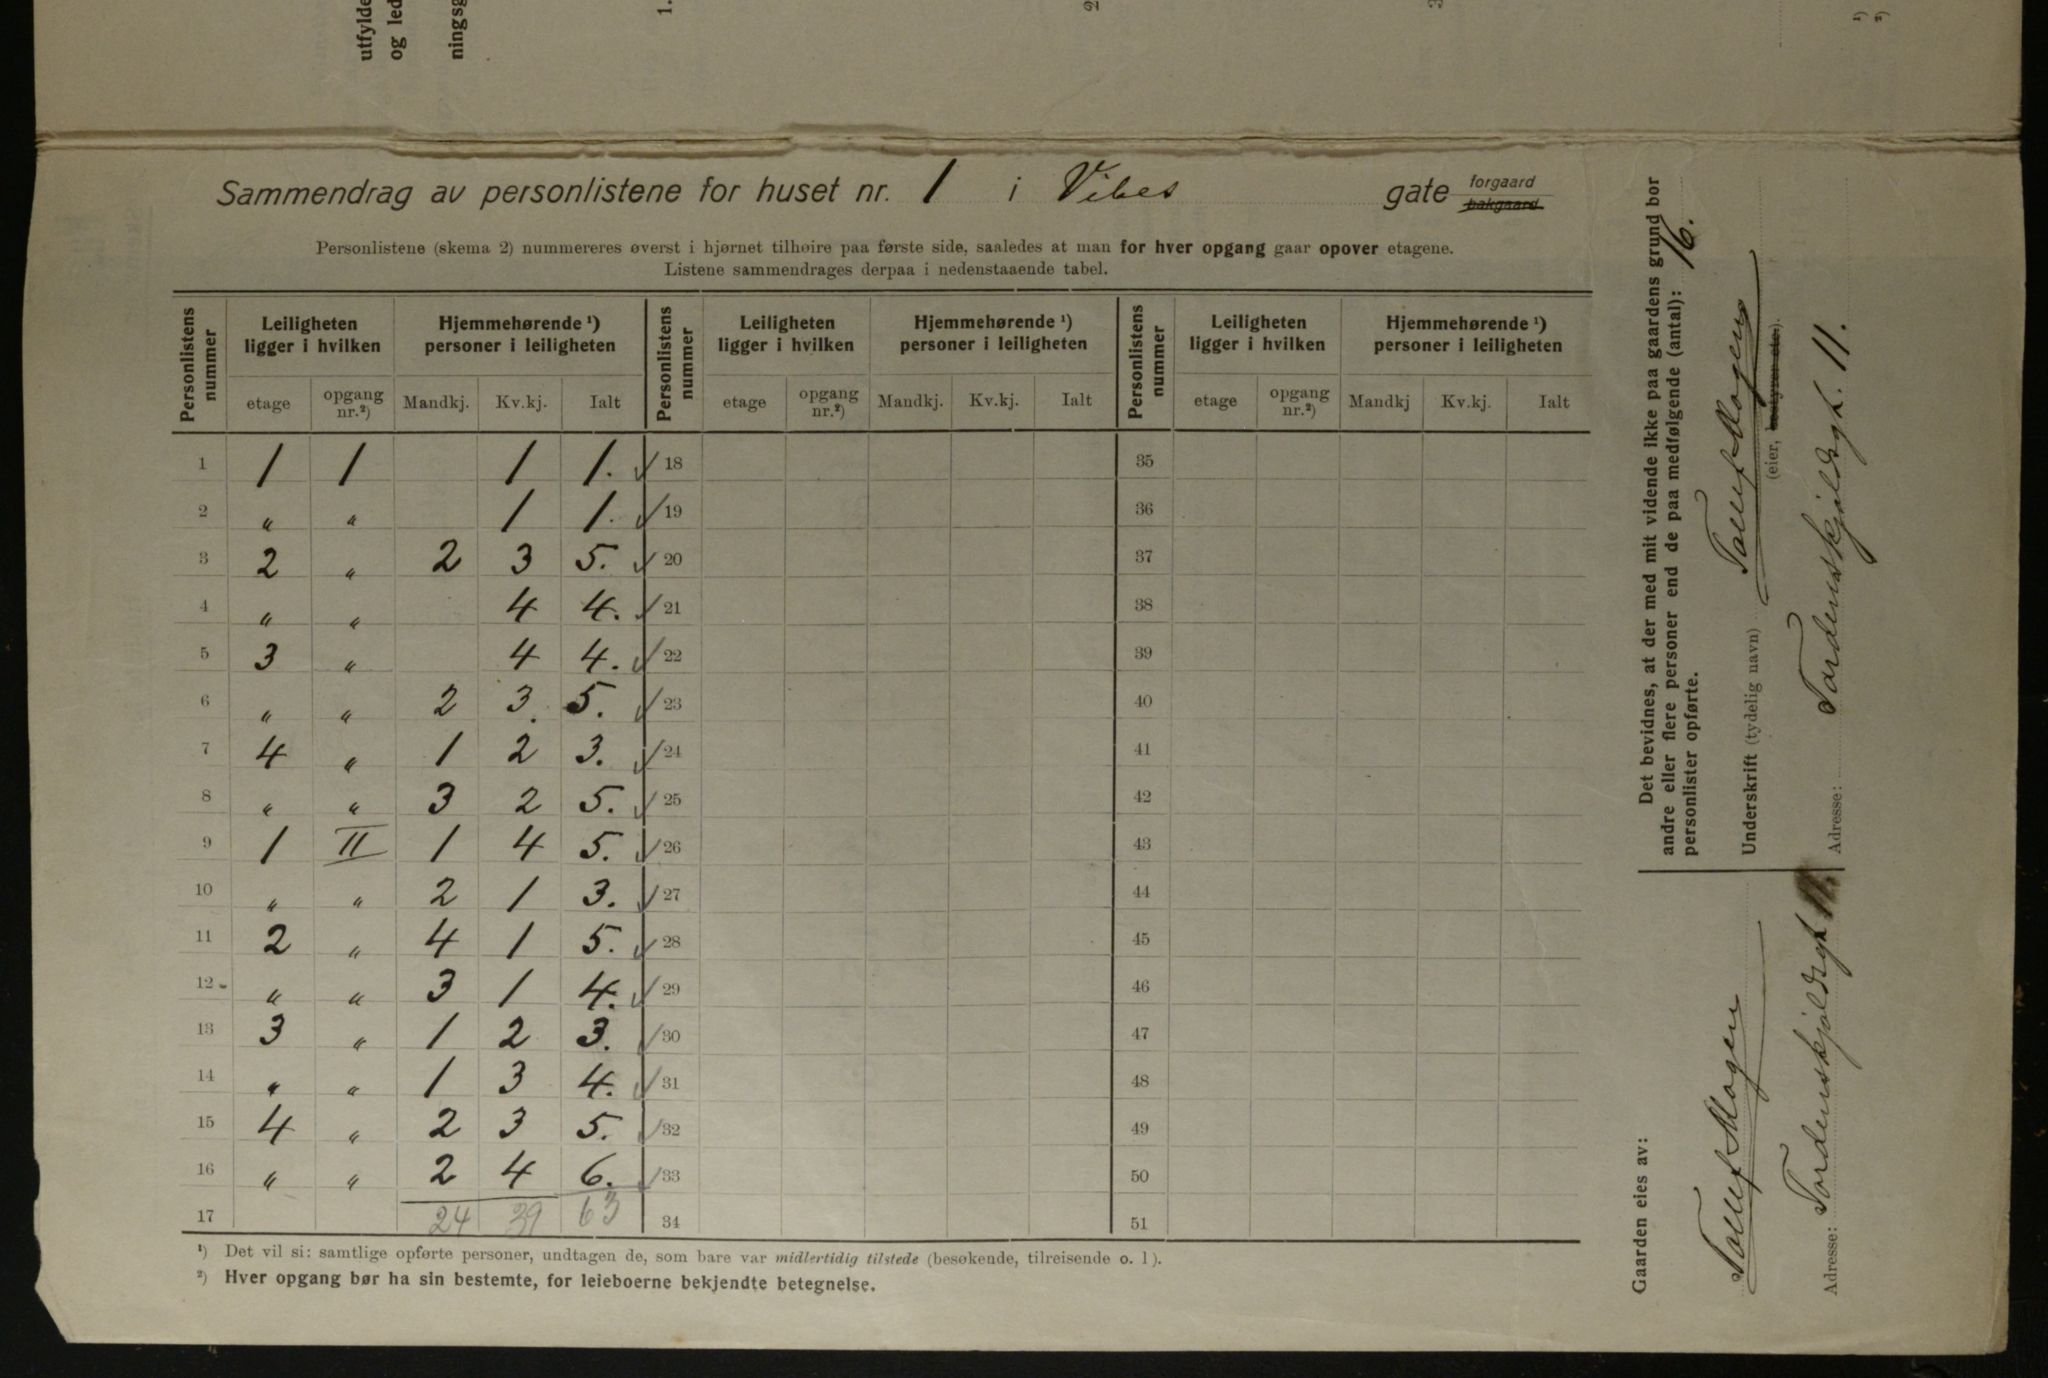 utfylde
og led
ningsg
1.
2
3
¹)
²)
Sammendrag av personlistene for huset nr. 1 i Vibes gate forgaard
bakgaard
Personlistene (skema 2) nummereres øverst i hjørnet tilhøire paa første side, saaledes at man for hver opgang gaar opover etagene.
Listene sammendrages derpaa i nedenstaaende tabel.
Personlistens nummer | Leiligheten ligger i hvilken | Hjemmehørende ¹) personer i leiligheten | Personlistens nummer | Leiligheten ligger i hvilken | Hjemmehørende ¹) personer i leiligheten | Personlistens nummer | Leiligheten ligger i hvilken | Hjemmehørende ¹) personer i leiligheten
etage | opgang nr.²) | Mandkj. | Kv.kj. | Ialt | etage | opgang nr.²) | Mandkj. | Kv.kj. | Ialt | etage | opgang nr.²) | Mandkj | Kv.kj. | Ialt
1 | 1 | 1 | | 1 | 1. ✓ | 18 | 35
2 | " | " | | 1 | 1. ✓ | 19 | 36
3 | 2 | " | 2 | 3 | 5. ✓ | 20 | 37
4 | " | " | | 4 | 4. ✓ | 21 | 38
5 | 3 | " | | 4 | 4. ✓ | 22 | 39
6 | " | " | 2 | 3. | 5. ✓ | 23 | 40
7 | 4 | " | 1 | 2 | 3. ✓ | 24 | 41
8 | " | " | 3 | 2 | 5. ✓ | 25 | 42
9 | 1 | II | 1 | 4 | 5. ✓ | 26 | 43
10 | " | " | 2 | 1 | 3. ✓ | 27 | 44
11 | 2 | " | 4 | 1 | 5. ✓ | 28 | 45
12 | " | " | 3 | 1 | 4. ✓ | 29 | 46
13 | 3 | " | 1 | 2 | 3. ✓ | 30 | 47
14 | " | " | 1 | 3 | 4. ✓ | 31 | 48
15 | 4 | " | 2 | 3 | 5. ✓ | 32 | 49
16 | " | " | 2 | 4 | 6. ✓ | 33 | 50
17 | | | 24 | 39 | 63 | 34 | 51
¹) Det vil si: samtlige opførte personer, undtagen de, som bare var midlertidig tilstede (besøkende, tilreisende o. l).
²) Hver opgang bør ha sin bestemte, for leieboerne bekjendte betegnelse.
Det bevidnes, at der med mit vidende ikke paa gaardens grund bor
andre eller flere personer end de paa medfølgende (antal): 16.
personlister opførte.
Underskrift (tydelig navn) Mogen
(eier, bestyrer etc).
Adresse: Tordenskjoldsgt. 11.
Gaarden eies av:
Mogen
Adresse: Tordenskjoldsgt 11.